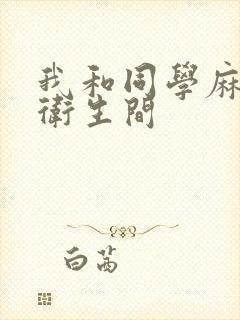 我和同學麻
衛生間
白茜